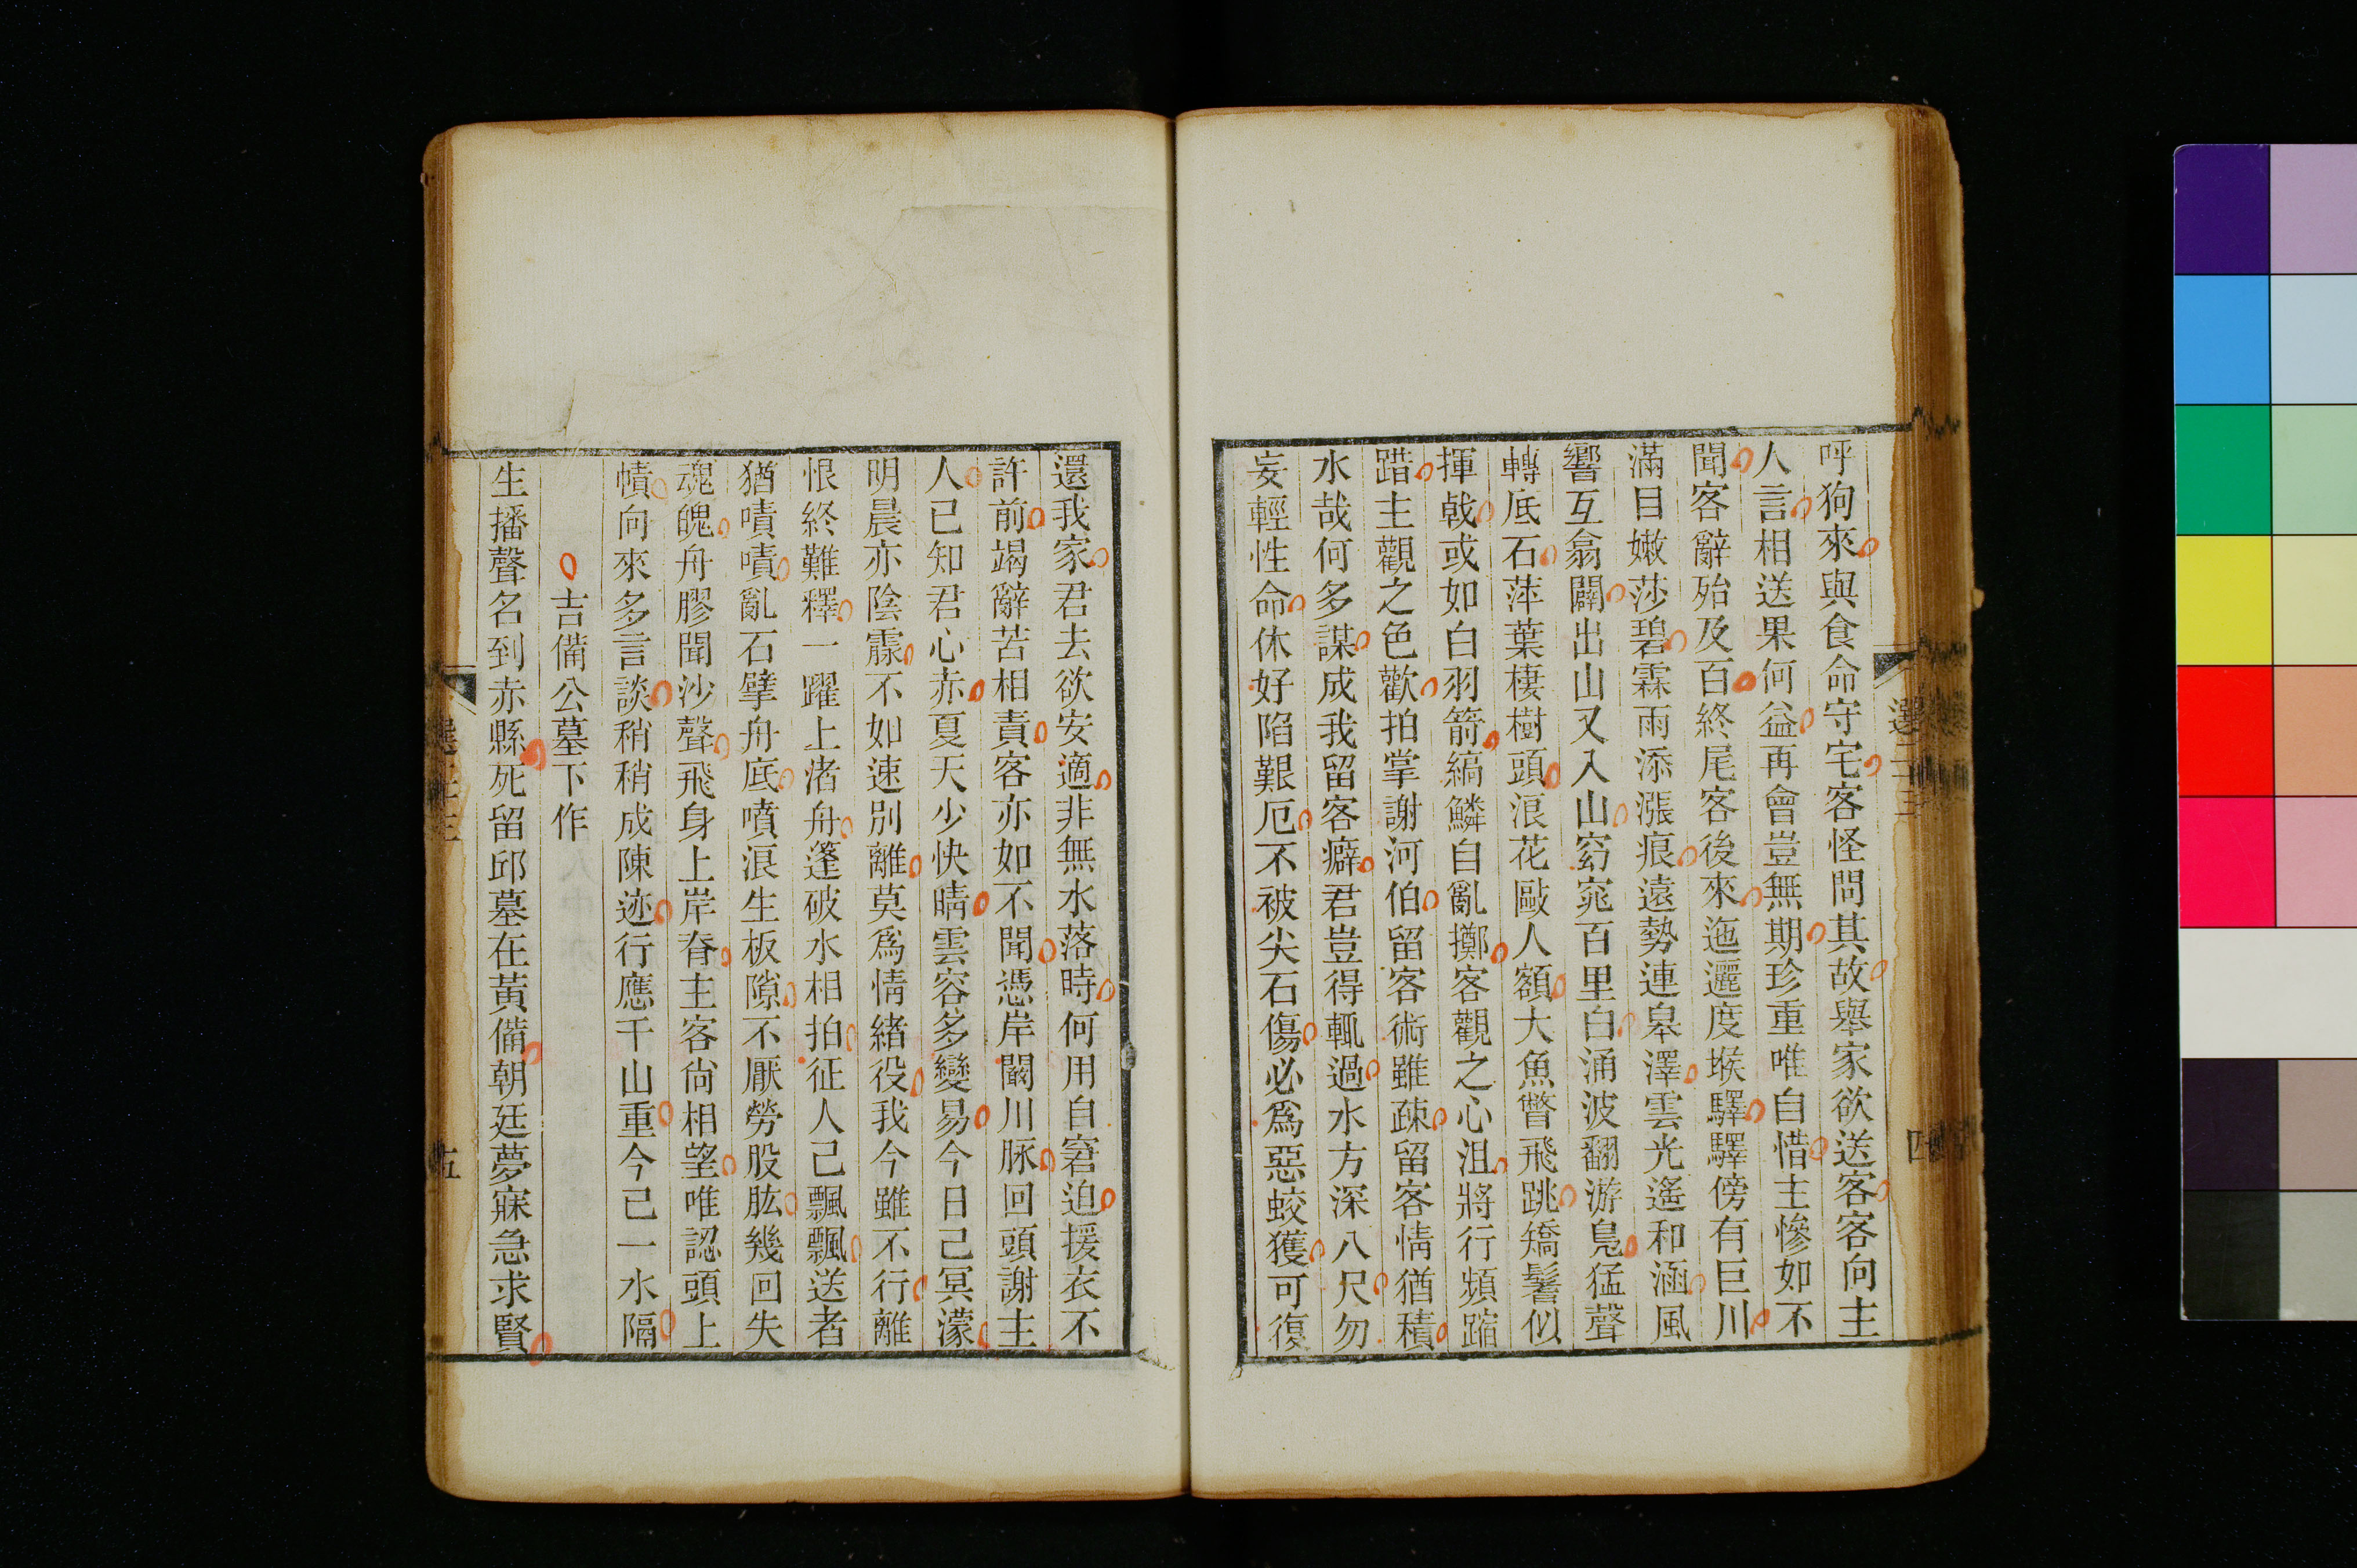 呼狗來與食命守宅客怪問其故舉家欲送客客向主
人言相送果何益再會豈無期珍重唯自惜主慘如不
聞客辭殆及百終尾客後來迤邐度堠驛驛傍有巨川
滿目嫩莎碧霖雨添漲痕遠勢連皋澤雲光遙和涵風
響互翕闢出山又入山窈窕百里白涌波翻游鳧猛聲
轉底石萍葉棲樹頭浪花毆人額大魚瞥飛跳矯鬐似
揮戟或如白羽箭縞鱗自亂擲客觀之心沮將行頻蹜
踖主觀之色歡拍掌謝河伯留客術雖疎留客情猶積
水哉何多謀成我留客癖君豈得輒過水方深八尺勿
妄輕性命休好陷艱厄不被尖石傷必爲惡蛟獲可復
選二十三
四
還我家君去欲安適非無水落時何用自窘迫援衣不
許前竭辭苦相責客亦如不聞憑岸闞川脉回頭謝主
人已知君心赤夏天少快晴雲容多變易今日已冥濛
明晨亦陰霢不如速別離莫爲情緒役我今雖不行離
恨終難釋一躍上渚舟篷破水相拍征人已飄飄送者
猶嘖嘖亂石擘舟底噴浪生板隙不厭勞股肱幾回失
魂魄舟膠聞沙聲飛身上岸脊主客尙相望唯認頭上
幘向來多言談稍稍成陳迹行應千山重今已一水隔
吉備公墓下作
生播聲名到赤縣死留邱墓在黃備朝廷夢寐急求賢
五